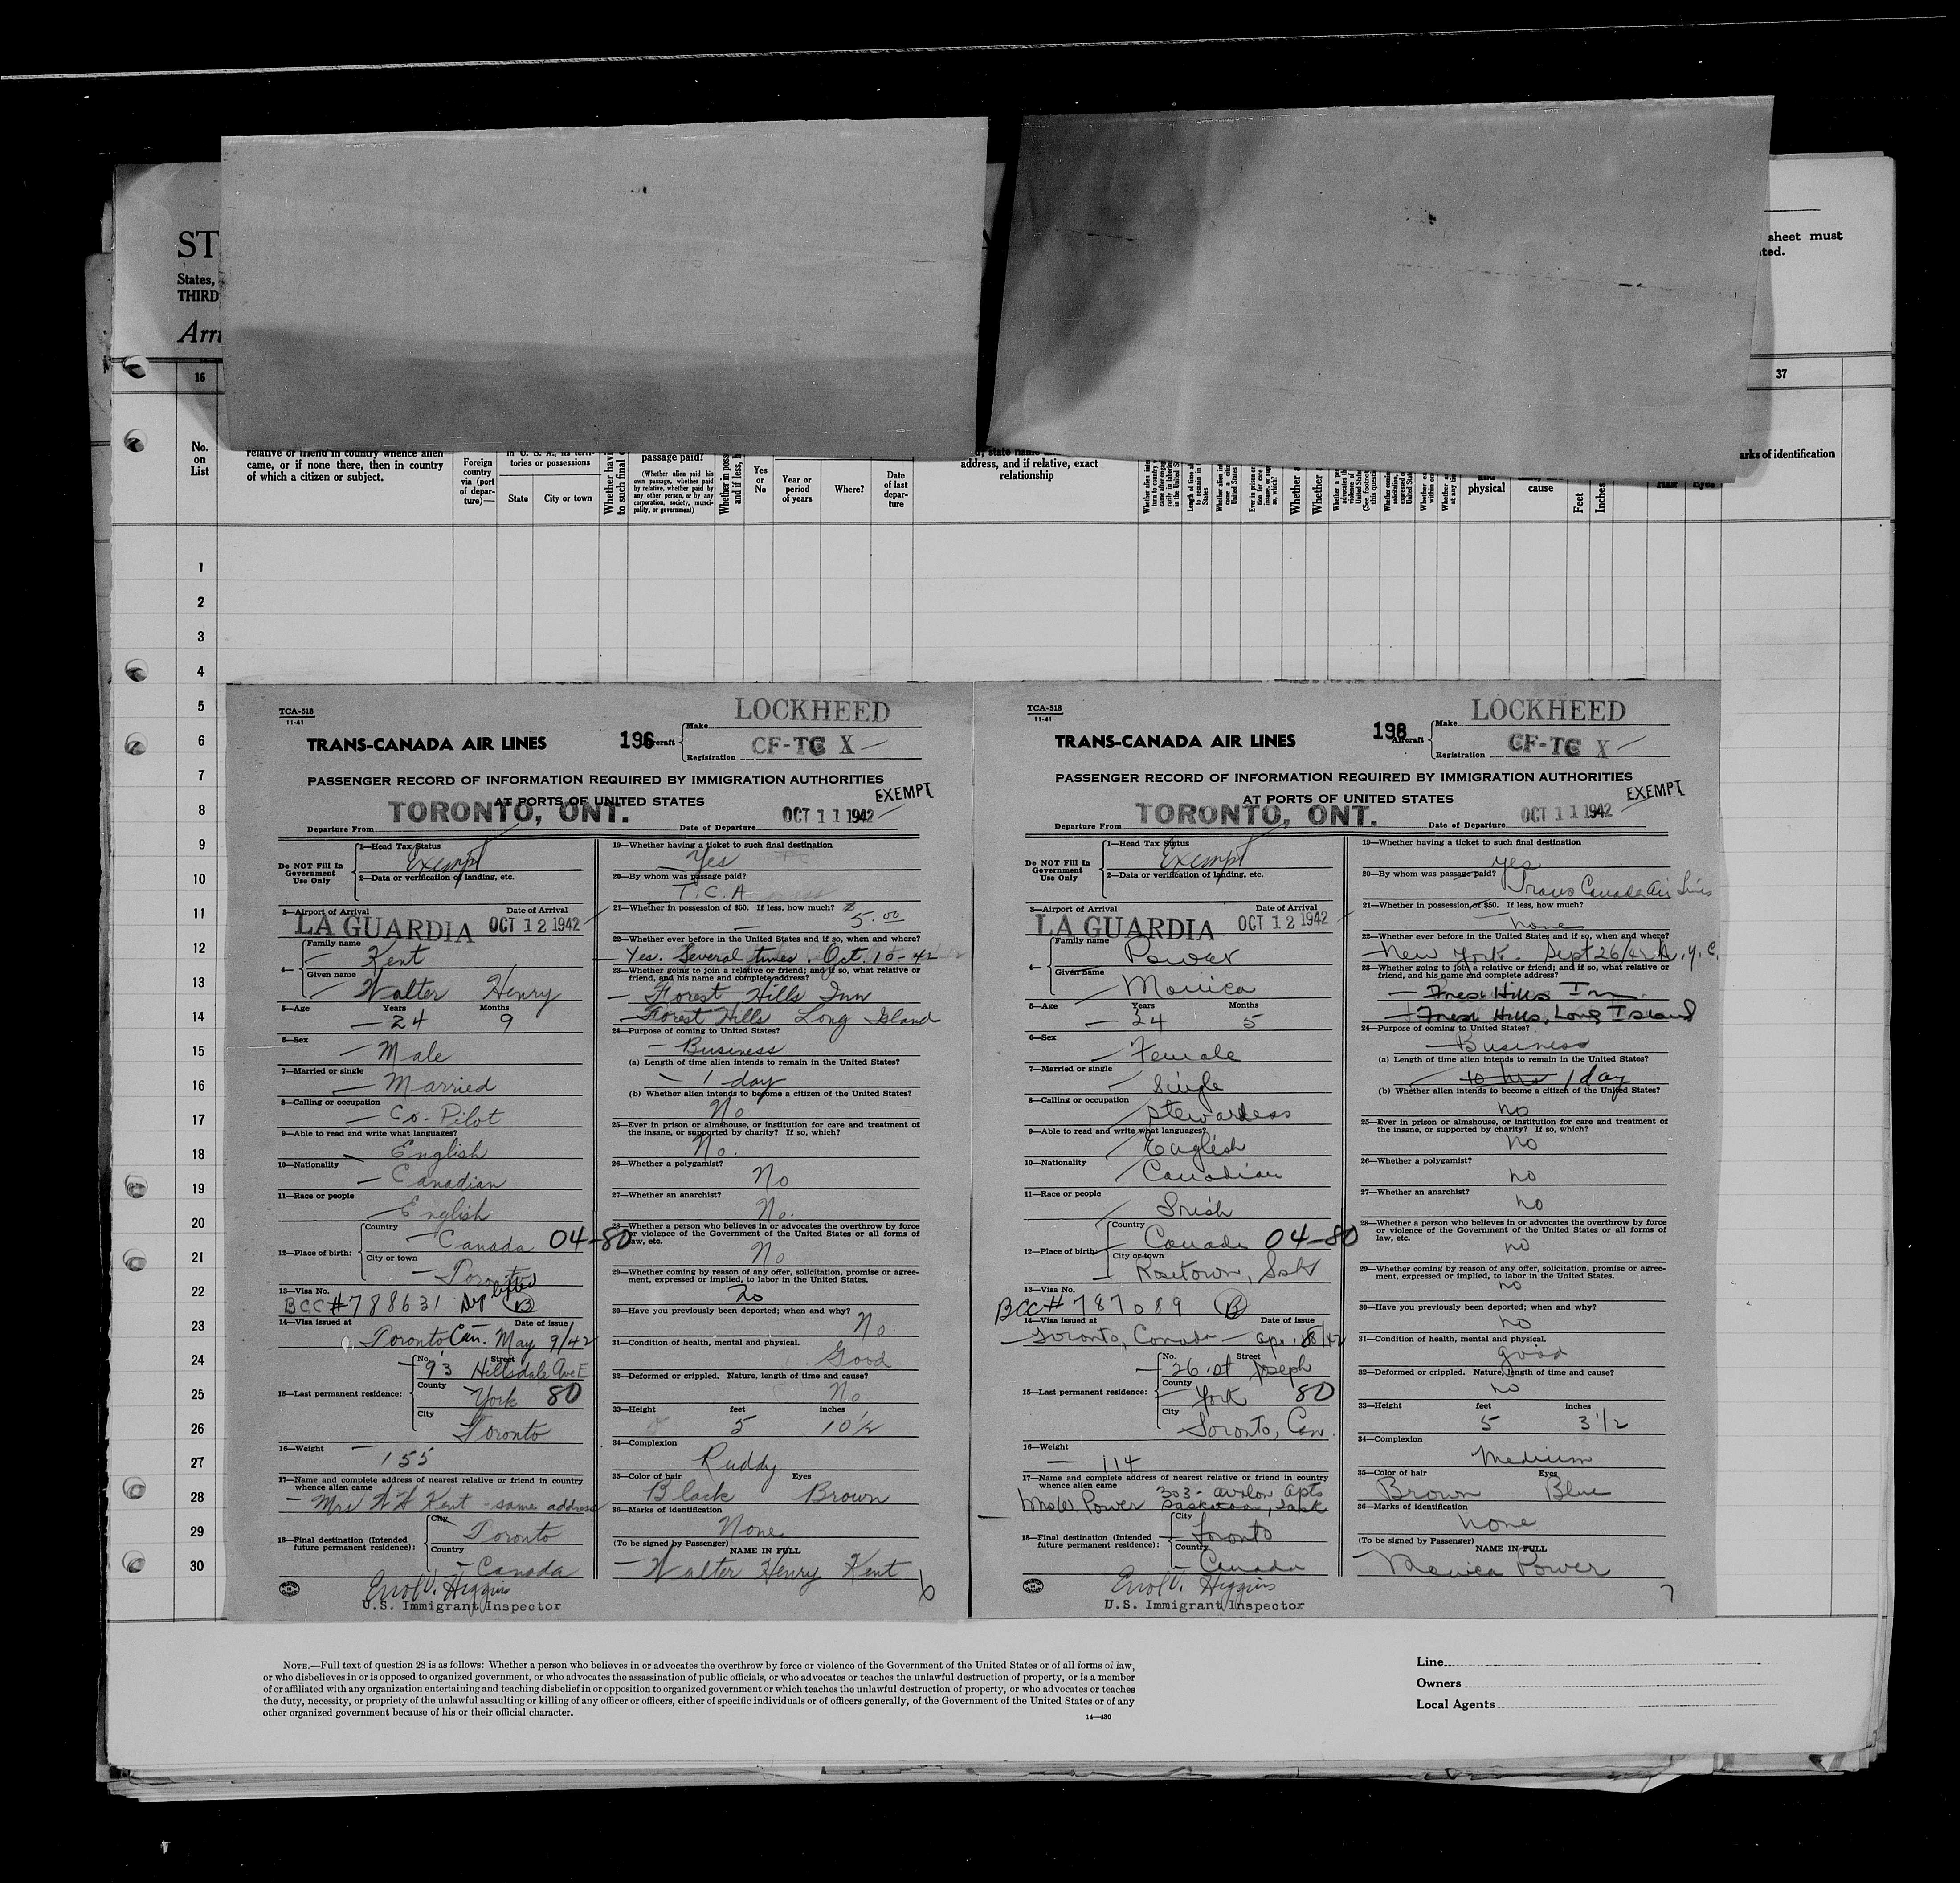 ST
States,
THIRD
Arri
sheet must
ted.
16
37
No.
on
List
relative or friend in country whence alien
came, or if none there, then in country
of which a citizen or subject.
Foreign
country
via (port
of depar-
ture)—
in U. S. A., its terri-
tories or possessions
State
City or town
passage paid?
(Whether alien paid his
own passage, whether paid
by relative, whether paid by
any other person, or by any
corporation, society, munici-
pality, or government)
Yes
or
No
Year or
period
of years
Where?
Date
of last
depar-
ture
address, and if relative, exact
relationship
physical
cause
Feet
Inches
arks of identification
1
2
3
4
5
6
7
8
9
10
11
12
13
14
15
16
17
18
19
20
21
22
23
24
25
26
27
28
29
30
TCA-518
11-41
LOCKHEED
TRANS-CANADA AIR LINES
196
Aircraft
Make
Registration CF-TC X
PASSENGER RECORD OF INFORMATION REQUIRED BY IMMIGRATION AUTHORITIES
AT PORTS OF UNITED STATES
EXEMPT
Departure From TORONTO, ONT.
Date of Departure OCT 11 1942
Do NOT Fill In
Government
Use Only
1—Head Tax Status
Exempt
2—Data or verification of landing, etc.
3—Airport of Arrival
Date of Arrival
LA GUARDIA OCT 12 1942
4—
Family name
Kent
Given name
Walter Henry
5—Age Years Months
24 9
6—Sex
Male
7—Married or single
Married
8—Calling or occupation
Co-Pilot
9—Able to read and write what languages?
English
10—Nationality
Canadian
11—Race or people
English
12—Place of birth:
Country
Canada 04-80
City or town
Toronto
13—Visa No.
BCC #788631 B
14—Visa issued at Date of issue
Toronto, Can. May 9/42
15—Last permanent residence:
No. Street
93 Hillsdale Ave E
County
York 80
City
Toronto
16—Weight
155
17—Name and complete address of nearest relative or friend in country
whence alien came
Mrs W H Kent - same address
18—Final destination (Intended
future permanent residence):
City
Toronto
Country
Canada
Errol V. Higgins
U.S. Immigrant Inspector
19—Whether having a ticket to such final destination
Yes
20—By whom was passage paid?
T.C.A
21—Whether in possession of $50. If less, how much? $
5.00
22—Whether ever before in the United States and if so, when and where?
Yes. Several times. Oct. 10-42
23—Whether going to join a relative or friend; and if so, what relative or
friend, and his name and complete address?
Forest Hills Inn
Forest Hills Long Island
24—Purpose of coming to United States?
Business
(a) Length of time alien intends to remain in the United States?
1 day
(b) Whether alien intends to become a citizen of the United States?
No
25—Ever in prison or almshouse, or institution for care and treatment of
the insane, or supported by charity? If so, which?
No.
26—Whether a polygamist?
No
27—Whether an anarchist?
No.
28—Whether a person who believes in or advocates the overthrow by force
or violence of the Government of the United States or all forms of
law, etc.
No
29—Whether coming by reason of any offer, solicitation, promise or agree-
ment, expressed or implied, to labor in the United States.
No
30—Have you previously been deported; when and why?
No.
31—Condition of health, mental and physical.
Good
32—Deformed or crippled. Nature, length of time and cause?
No
33—Height feet inches
5 10½
34—Complexion
Ruddy
35—Color of hair Eyes
Black Brown
36—Marks of identification
None
(To be signed by Passenger)
NAME IN FULL
Walter Henry Kent
6
TCA-518
11-41
LOCKHEED
TRANS-CANADA AIR LINES
198
Aircraft
Make
Registration CF-TC X
PASSENGER RECORD OF INFORMATION REQUIRED BY IMMIGRATION AUTHORITIES
AT PORTS OF UNITED STATES
EXEMPT
Departure From TORONTO, ONT.
Date of Departure OCT 11 1942
Do NOT Fill In
Government
Use Only
1—Head Tax Status
Exempt
2—Data or verification of landing, etc.
3—Airport of Arrival
Date of Arrival
LA GUARDIA OCT 12 1942
4—
Family name
Power
Given name
Monica
5—Age Years Months
24 5
6—Sex
Female
7—Married or single
Single
8—Calling or occupation
Stewardess
9—Able to read and write what languages?
English
10—Nationality
Canadian
11—Race or people
Irish
12—Place of birth:
Country
Canada 04-80
City or town
Rosetown, Sask
13—Visa No.
BCC #787089 B
14—Visa issued at Date of issue
Toronto, Canada - Apr. 18/42
15—Last permanent residence:
No. Street
26 St Joseph
County
York 80
City
Toronto, Can.
16—Weight
114
17—Name and complete address of nearest relative or friend in country
whence alien came
303 - Avalon Apts
Mrs W. Power Saskatoon, Sask
18—Final destination (Intended
future permanent residence):
City
Toronto
Country
Canada
Errol V. Higgins
U.S. Immigrant Inspector
19—Whether having a ticket to such final destination
Yes
20—By whom was passage paid?
Trans Canada Air Lines
21—Whether in possession of $50. If less, how much?
None
22—Whether ever before in the United States and if so, when and where?
New York. Sept 26/42 N.Y.C.
23—Whether going to join a relative or friend; and if so, what relative or
friend, and his name and complete address?
Forest Hills Inn
Forest Hills, Long Island
24—Purpose of coming to United States?
Business
(a) Length of time alien intends to remain in the United States?
10 hrs 1 day
(b) Whether alien intends to become a citizen of the United States?
no
25—Ever in prison or almshouse, or institution for care and treatment of
the insane, or supported by charity? If so, which?
no
26—Whether a polygamist?
no
27—Whether an anarchist?
no
28—Whether a person who believes in or advocates the overthrow by force
or violence of the Government of the United States or all forms of
law, etc.
no
29—Whether coming by reason of any offer, solicitation, promise or agree-
ment, expressed or implied, to labor in the United States.
no
30—Have you previously been deported; when and why?
no
31—Condition of health, mental and physical.
good
32—Deformed or crippled. Nature, length of time and cause?
no
33—Height feet inches
5 3 1/2
34—Complexion
Medium
35—Color of hair Eyes
Brown Blue
36—Marks of identification
none
(To be signed by Passenger)
NAME IN FULL
Monica Power
7
NOTE.—Full text of question 28 is as follows: Whether a person who believes in or advocates the overthrow by force or violence of the Government of the United States or of all forms of law,
or who disbelieves in or is opposed to organized government, or who advocates the assassination of public officials, or who advocates or teaches the unlawful destruction of property, or is a member
of or affiliated with any organization entertaining and teaching disbelief in or opposition to organized government or which teaches the unlawful destruction of property, or who advocates or teaches
the duty, necessity, or propriety of the unlawful assaulting or killing of any officer or officers, either of specific individuals or of officers generally, of the Government of the United States or of any
other organized government because of his or their official character.
14—430
Line
Owners
Local Agents